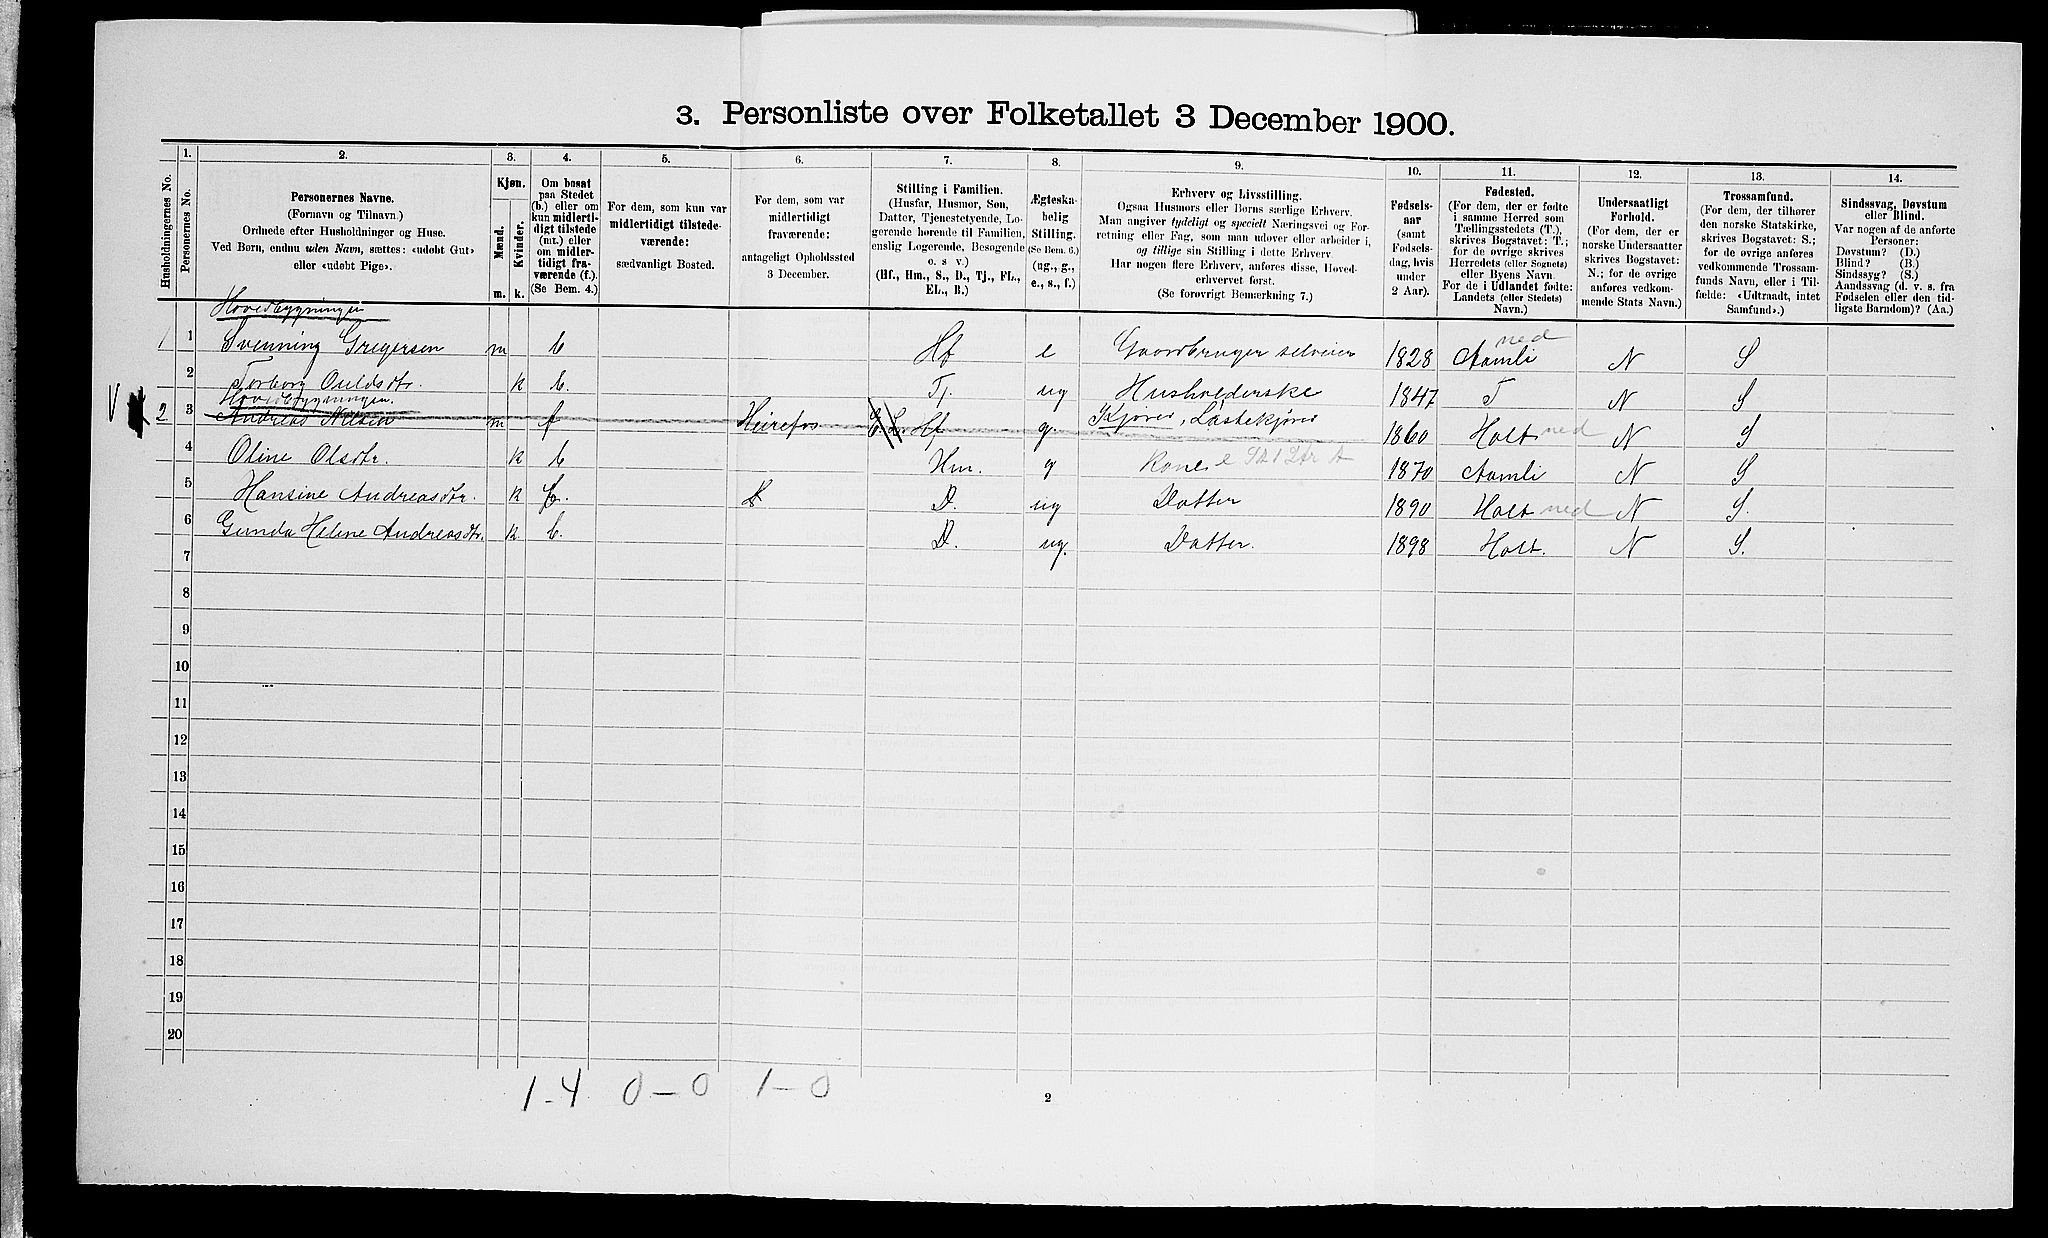 3. Personliste over Folketallet 3 December 1900.
1. 2. 3. 4. 5. 6. 7. 8. 9. 10. 11. 12. 13. 14.
Husholdningernes No.
Personernes No.
Personernes Navne.
(Fornavn og Tilnavn.)
Ordnede efter Husholdninger og Huse.
Ved Børn, endnu uden Navn, sættes: «udøbt Gut»
eller «udøbt Pige».
Kjøn.
Mænd.
Kvinder.
m. k.
Om bosat
paa Stedet
(b.) eller om
kun midlerti-
digt tilstede
(mt.) eller
om midler-
tidigt fra-
værende (f.).
(Se Bem. 4.)
For dem, som kun var
midlertidigt tilstede-
værende:
sædvanligt Bosted.
For dem, som var
midlertidigt
fraværende:
antageligt Opholdssted
3 December.
Stilling i Familien.
(Husfar, Husmor, Søn,
Datter, Tjenestetyende, Lo-
gerende hørende til Familien,
enslig Logerende, Besøgende
o. s. v.)
(Hf., Hm., S., D., Tj., FL.,
EL., B.)
Ægteska-
belig
Stilling.
(Se Bem. 6.)
(ug., g.,
e., s., f.)
Erhverv og Livsstilling.
Ogsaa Husmors eller Børns særlige Erhverv.
Man angiver tydeligt og specielt Næringsvei og For-
retning eller Fag, som man udøver eller arbeider i,
og tillige sin Stilling i dette Erhverv.
Har nogen flere Erhverv, anføres disse, Hoved-
erhvervet først.
(Se forøvrigt Bemærkning 7.)
Fødsels-
aar
(samt
Fødsels-
dag, hvis
under
2 Aar).
Fødested.
(For dem, der er fødte
i samme Herred som
Tællingsstedets (T.),
skrives Bogstavet: T.;
for de øvrige skrives
Herredets (eller Sognets)
eller Byens Navn.
For de i Udlandet fødte:
Landets (eller Stedets)
Navn.)
Undersaatligt
Forhold.
(For dem, der er
norske Undersaatter
skrives Bogstavet:
N.; for de øvrige
anføres vedkom-
mende Stats Navn.)
Trossamfund.
(For dem, der tilhører
den norske Statskirke,
skrives Bogstavet: S.;
for de øvrige anføres
vedkommende Trossam-
funds Navn, eller i Til-
fælde: «Udtraadt, intet
Samfund».)
Sindssvag, Døvstum
eller Blind.
Var nogen af de anførte
Personer:
Døvstum? (D.)
Blind? (B.)
Sindssyg? (S.)
Aandssvag (d. v. s. fra
Fødselen eller den tid-
ligste Barndom)? (Aa.)
Hovedbygningen
1 1 Svenning Gregersen m b Hf e Gaardbruger selveier 1828 Aamli ned N S
2 Torborg Ouldsdtr. k b. Tj. ug Husholderske 1847 T N S
Hovedbygningen.
V 2 3 Andreas Nilsen m f Heirefos Hf g. Kjører, Lastekjører 1860 Holt ned N S
4 Oline Olsdtr. k b Hm. g Kone 1870 Aamli N S
5 Hansine Andreasdtr. k b. D. ug Datter 1890 Holt ned N S.
6 Gunda Heline Andreasdtr. k b. D. ug. Datter. 1898 Holt. N S.
7
8
9
10
11
12
13
14
15
16
17
18
19
20
1-4 0-0 1-0
2